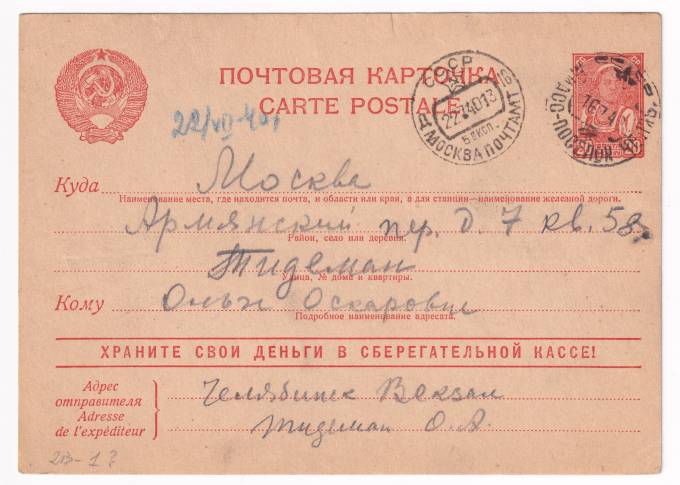 ПОЧТОВАЯ КАРТОЧКА
CARTE POSTALE
СССР
22.7.40.13
5 эксп.
МОСКВА ПОЧТАМТ
22/VII-40г
Куда Москва
Наименование места, где находится почта, и области или края, а для станции—наименование железной дороги.
Армянский пер. д. 7 кв. 58.
Район, село или деревня.
Тидеман
Улица, № дома и квартиры.
Кому Ольге Оскаровне
Подробное наименование адресата.
ХРАНИТЕ СВОИ ДЕНЬГИ В СБЕРЕГАТЕЛЬНОЙ КАССЕ!
Адрес
отправителя
Adresse
de l'expéditeur
Челябинск Вокзал
Тидеман О. А.